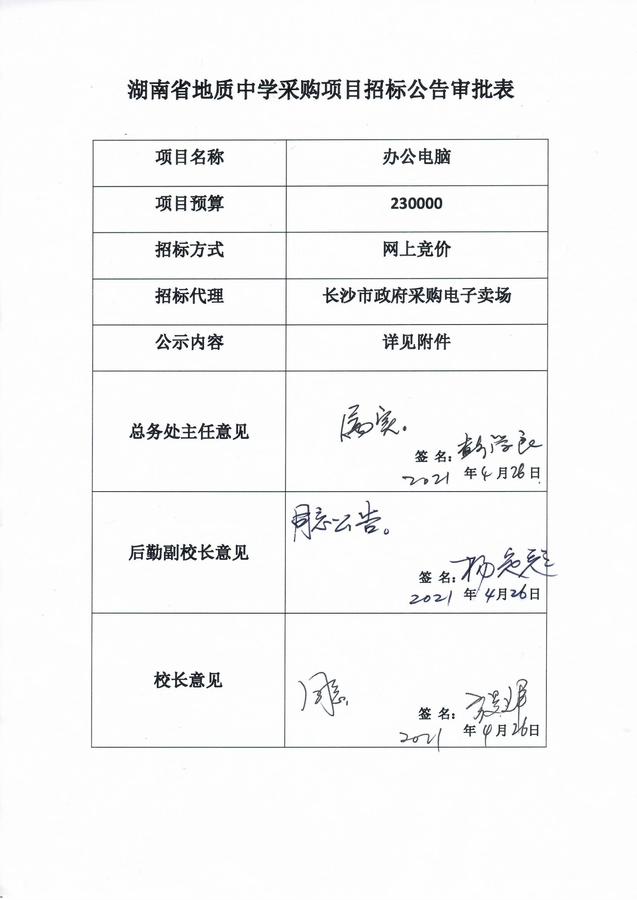 湖南省地质中学采购项目招标公告审批表
项目名称 办公电脑
项目预算 230000
招标方式 网上竞价
招标代理 长沙市政府采购电子卖场
公示内容 详见附件
属实。
总务处主任意见
签 名:
2021 年 4 月 26 日
同意公告。
后勤副校长意见
签 名: 杨
2021 年 4 月 26 日
校长意见
同意
签 名:
2021 年 4 月 26 日